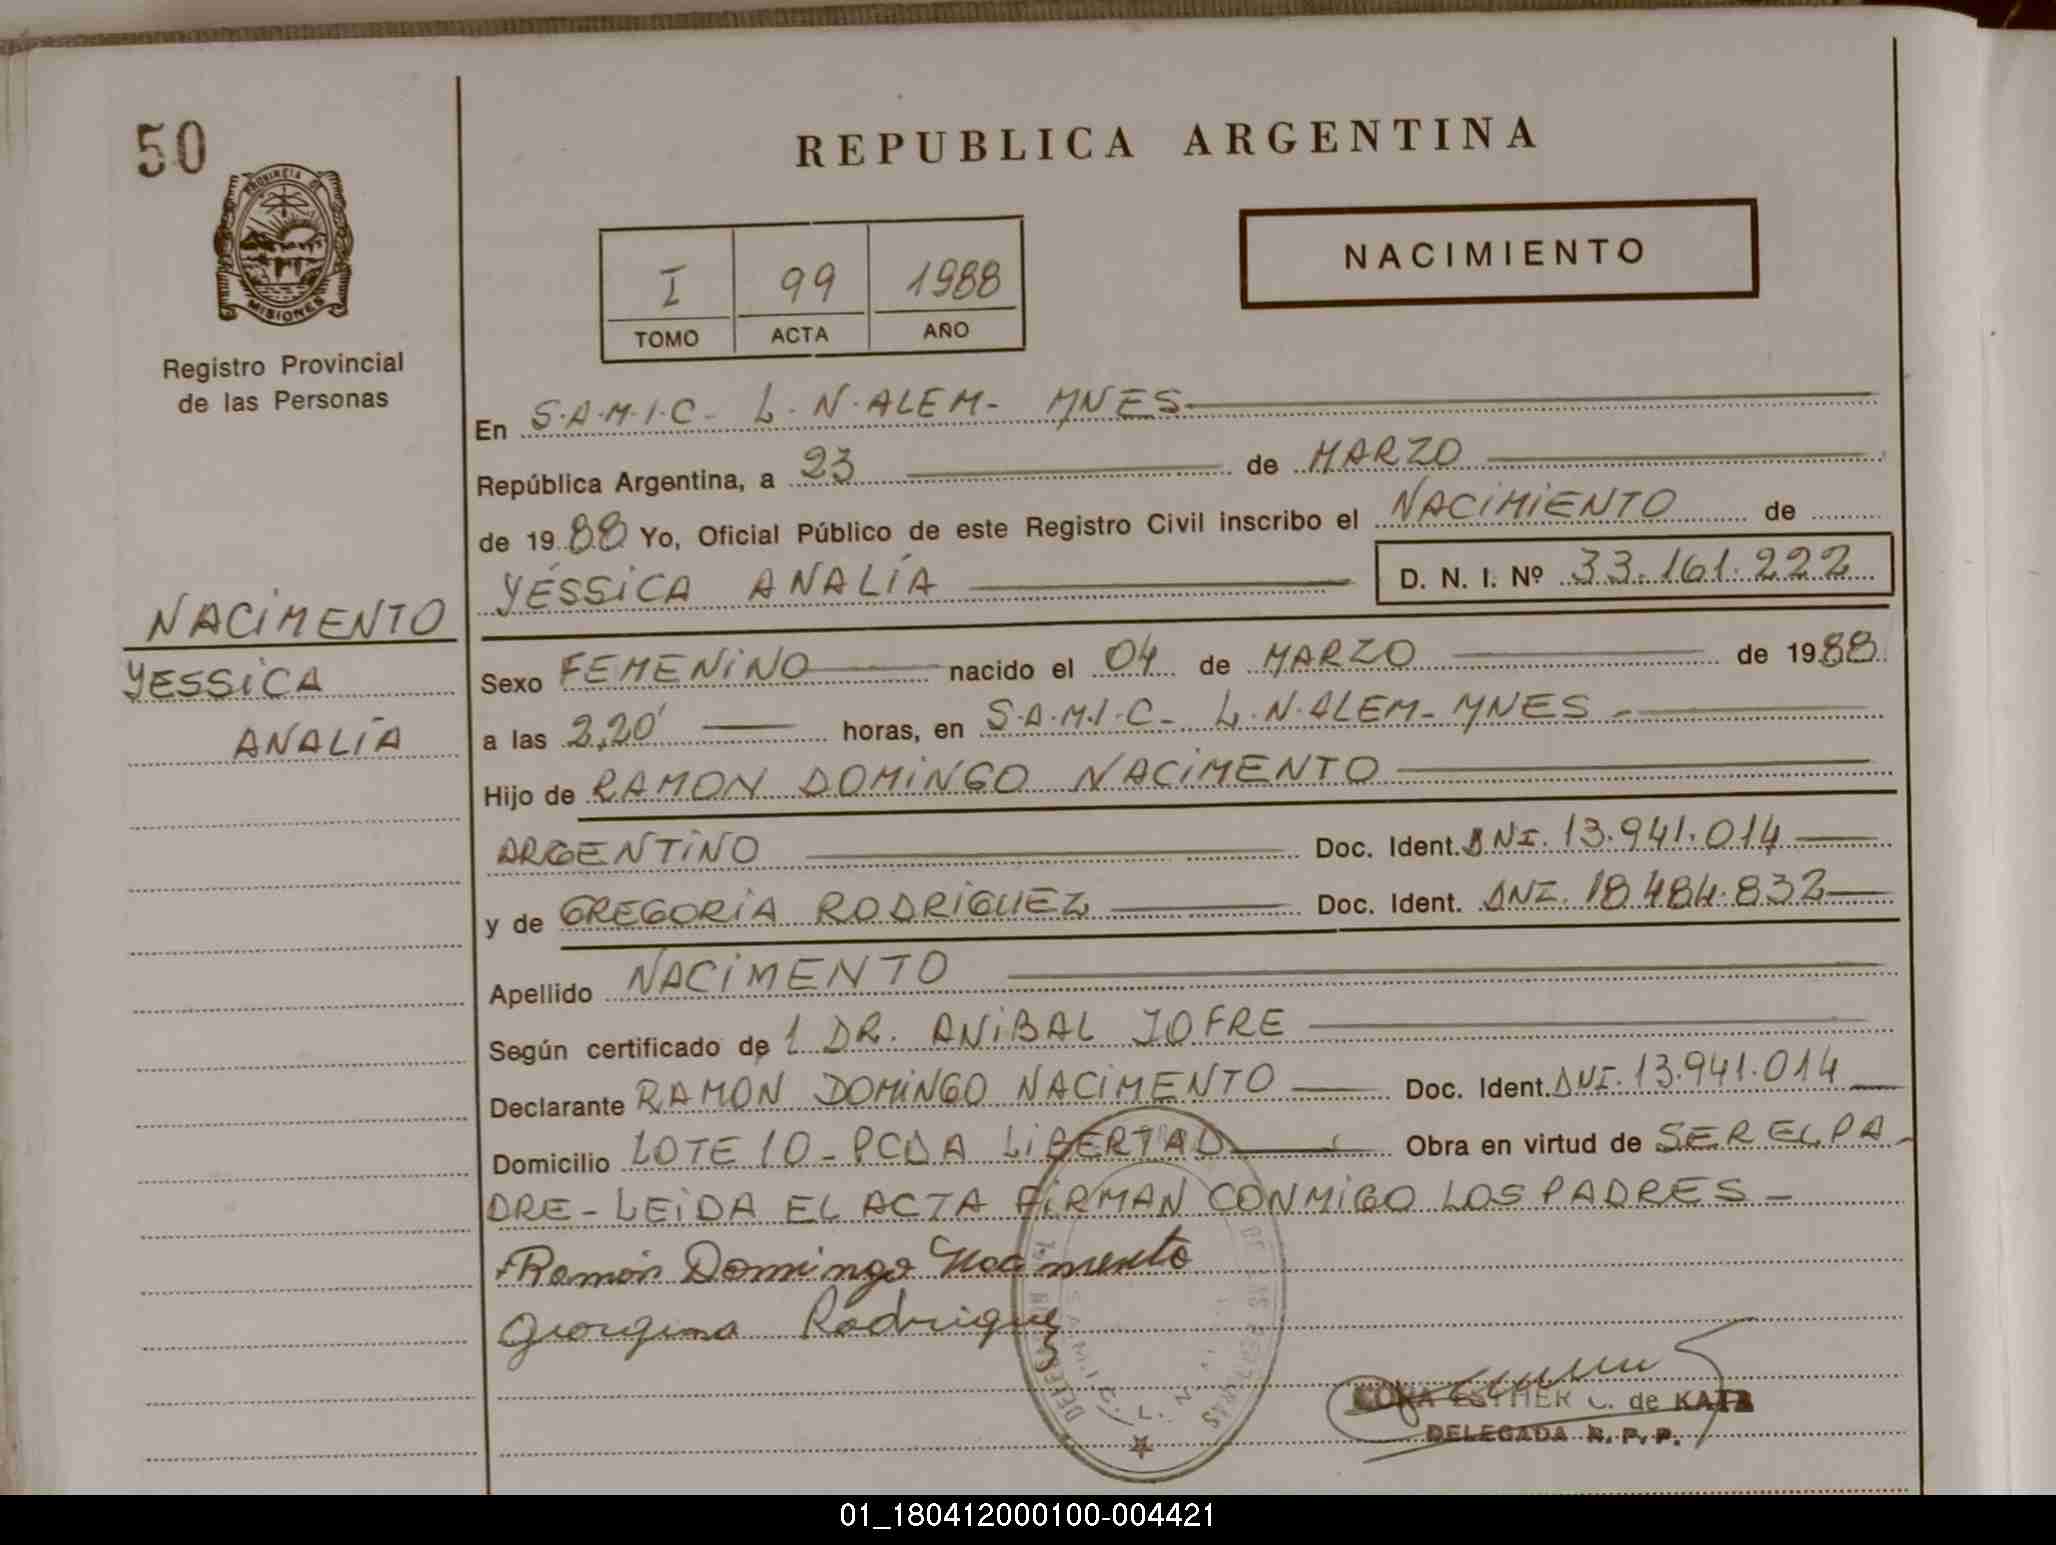 50
PROVINCIA DE
MISIONES
Registro Provincial
de las Personas
NACIMENTO
YESSICA
ANALÍA
REPUBLICA ARGENTINA
NACIMIENTO
I 99 1988
TOMO ACTA AÑO
En S.A.M.I.C- L.N.ALEM- MNES
República Argentina, a 23 de MARZO
de 1988 Yo, Oficial Público de este Registro Civil inscribo el NACIMIENTO de
YÉSSICA ANALÍA D. N. I. Nº 33.161.222
Sexo FEMENINO nacido el 04 de MARZO de 1988
a las 2,20' horas, en S.A.M.I.C- L.N.ALEM-MNES-
Hijo de RAMON DOMINGO NACIMENTO
ARGENTINO Doc. Ident. DNI. 13.941.014
y de GREGORIA RODRIGUEZ Doc. Ident. DNI. 18.484.832
Apellido NACIMENTO
Según certificado de 1 DR. ANIBAL JOFRE
Declarante RAMON DOMINGO NACIMENTO Doc. Ident. DNI. 13.941.014
Domicilio LOTE 10-PCDA LIBERTAD Obra en virtud de SER EL PA-
DRE-LEIDA EL ACTA FIRMAN CONMIGO LOS PADRES-
Ramón Domingo Nacimento
Georgina Rodriguez
ESTHER C. de KATA
DELEGADA R. P. P.
01_180412000100-004421